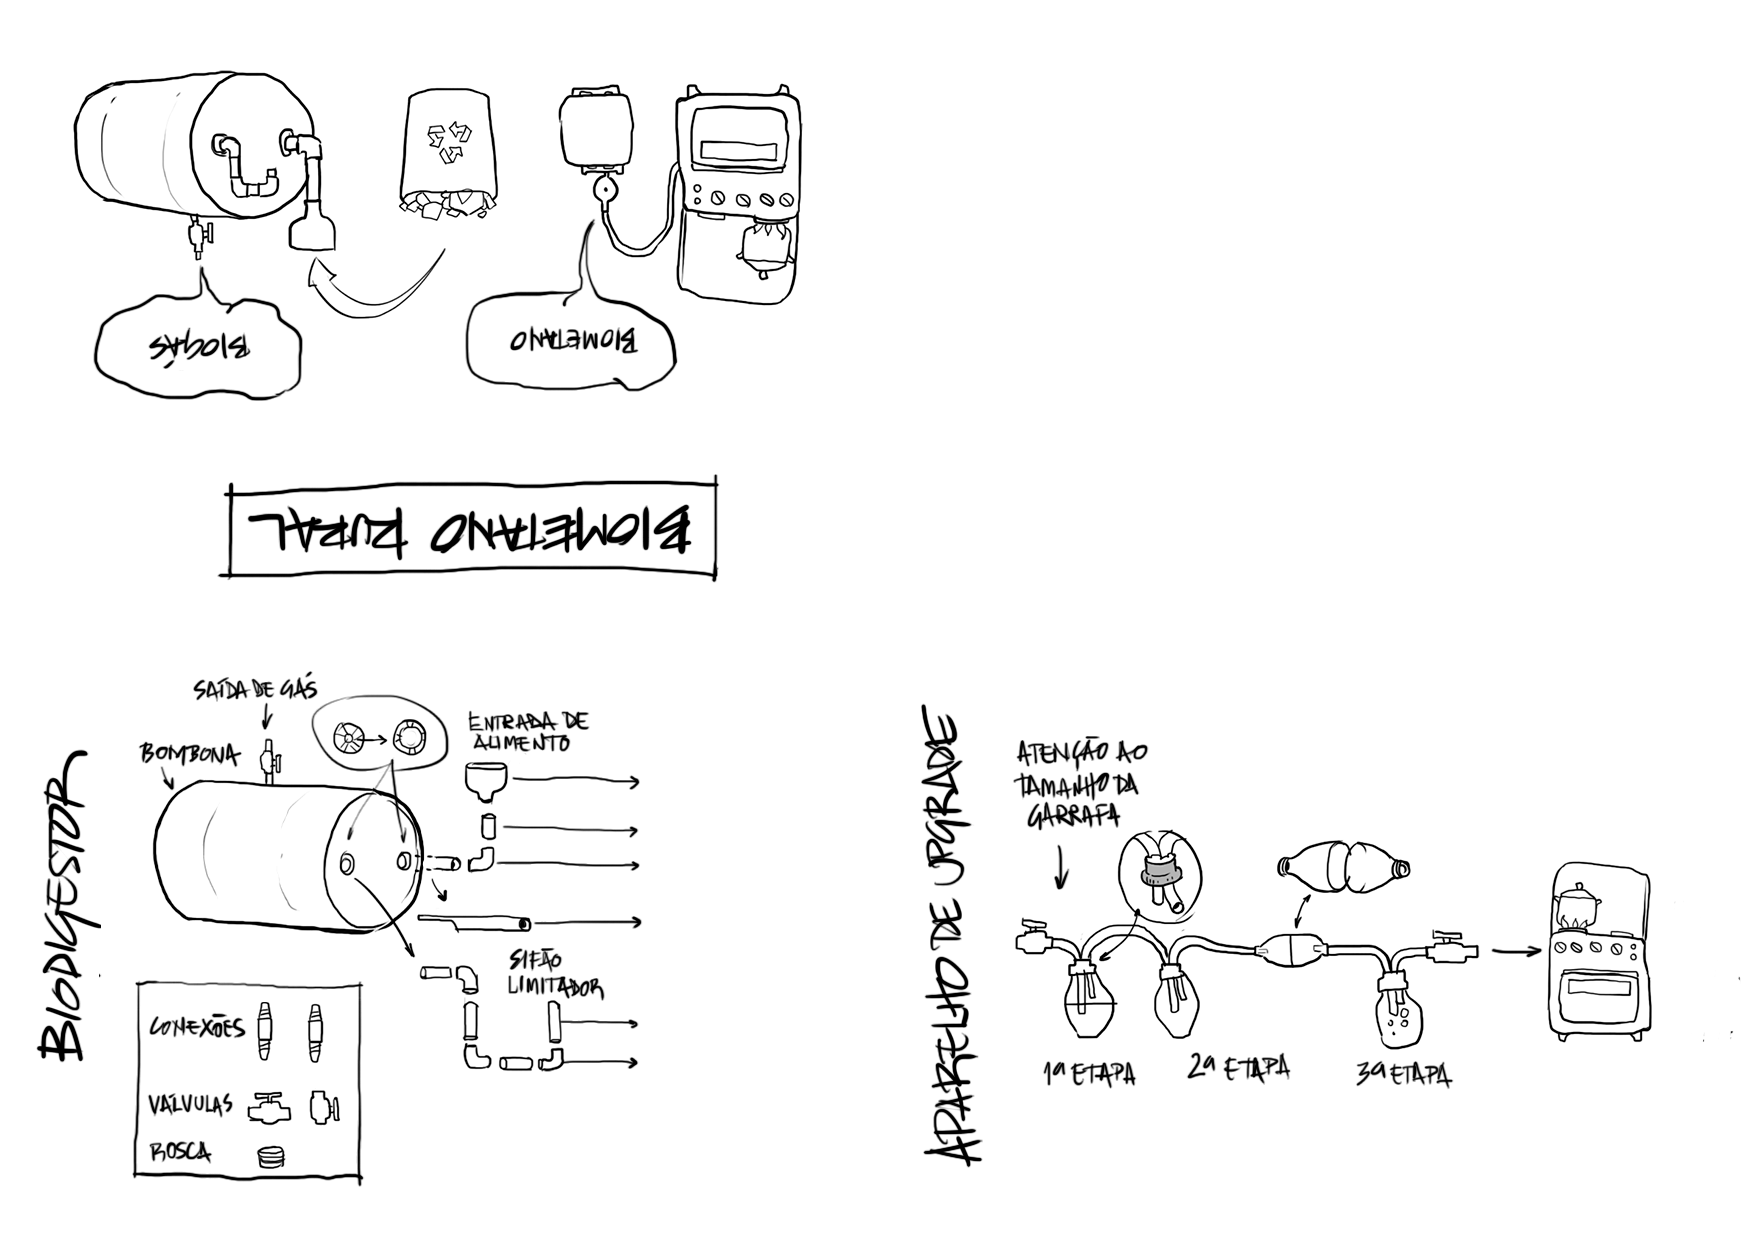 BIOMETANO RURAL
BIOMETANO
BIOGÁS
BIODIGESTOR
SAÍDA DE GÁS
BOMBONA
ENTRADA DE
ALIMENTO
SIFÃO
LIMITADOR
CONEXÕES
VÁLVULAS
ROSCA
APARELHO DE UPGRADE
ATENÇÃO AO
TAMANHO DA
GARRAFA
1ª ETAPA
2ª ETAPA
3ª ETAPA